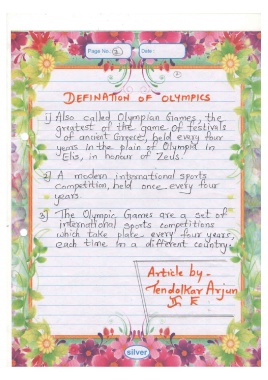 Page No: 2 Date:
DEFINATION OF OLYMPICS
1) Also called Olympian Games, the
greatest of the game of festivals
of ancient Greece, held every four
years in the plain of Olympid in
Elis, in honour of Zeus.
2) A modern international sports
competition, held once every four
years.
3) The Olympic Games are a set of
international sports competitions
which take place every four years,
each time in a different country.
Article by -
Tendolkar Arjun
silver